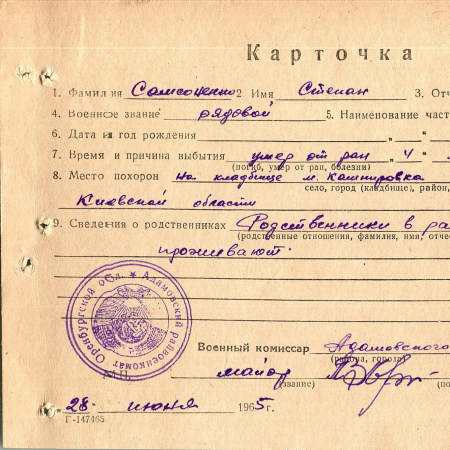 Карточка
1. Фамилия Самсоненко 2. Имя Степан 3. Отч
4. Военное звание рядовой 5. Наименование част
6. Дата и год рождения " "
7. Время и причина выбытия умер от ран 4
(погиб, умер от ран, болезни)
8. Место похорон на кладбище м. Кашперовка
село, город (кладбище), район,
Киевской области
9. Сведения о родственниках Родственники в ра
(родственные отношения, фамилия, имя, отче
проживают.
Оренбургской обл. ★ Адамовский райвоенкомат
Военный комиссар Адамовского
(района, города)
майор
(звание) (по
"28" июня 1965г.
Г-147465